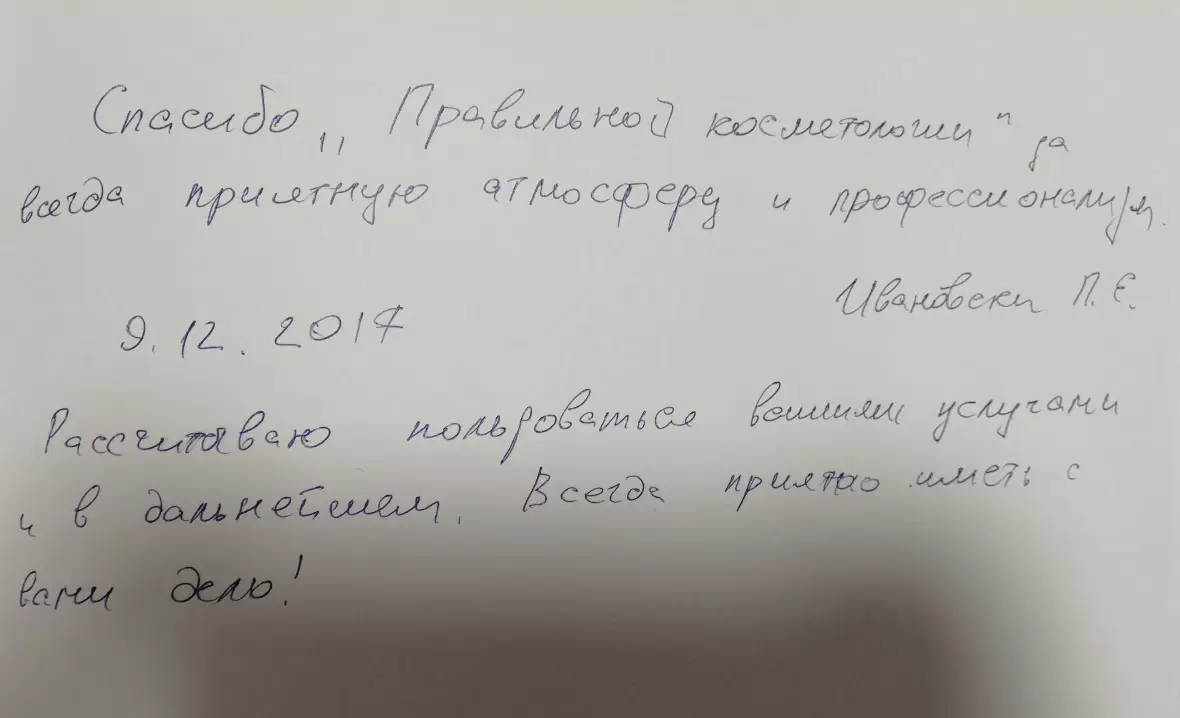 Спасибо „ Правильной косметологии" за
всегда приятную атмосферу и профессионализм.
Ивановски П. Е.
9. 12. 2017
Рассчитываю пользоваться вашими услугами
и в дальнейшем. Всегда приятно иметь с
вами дело!